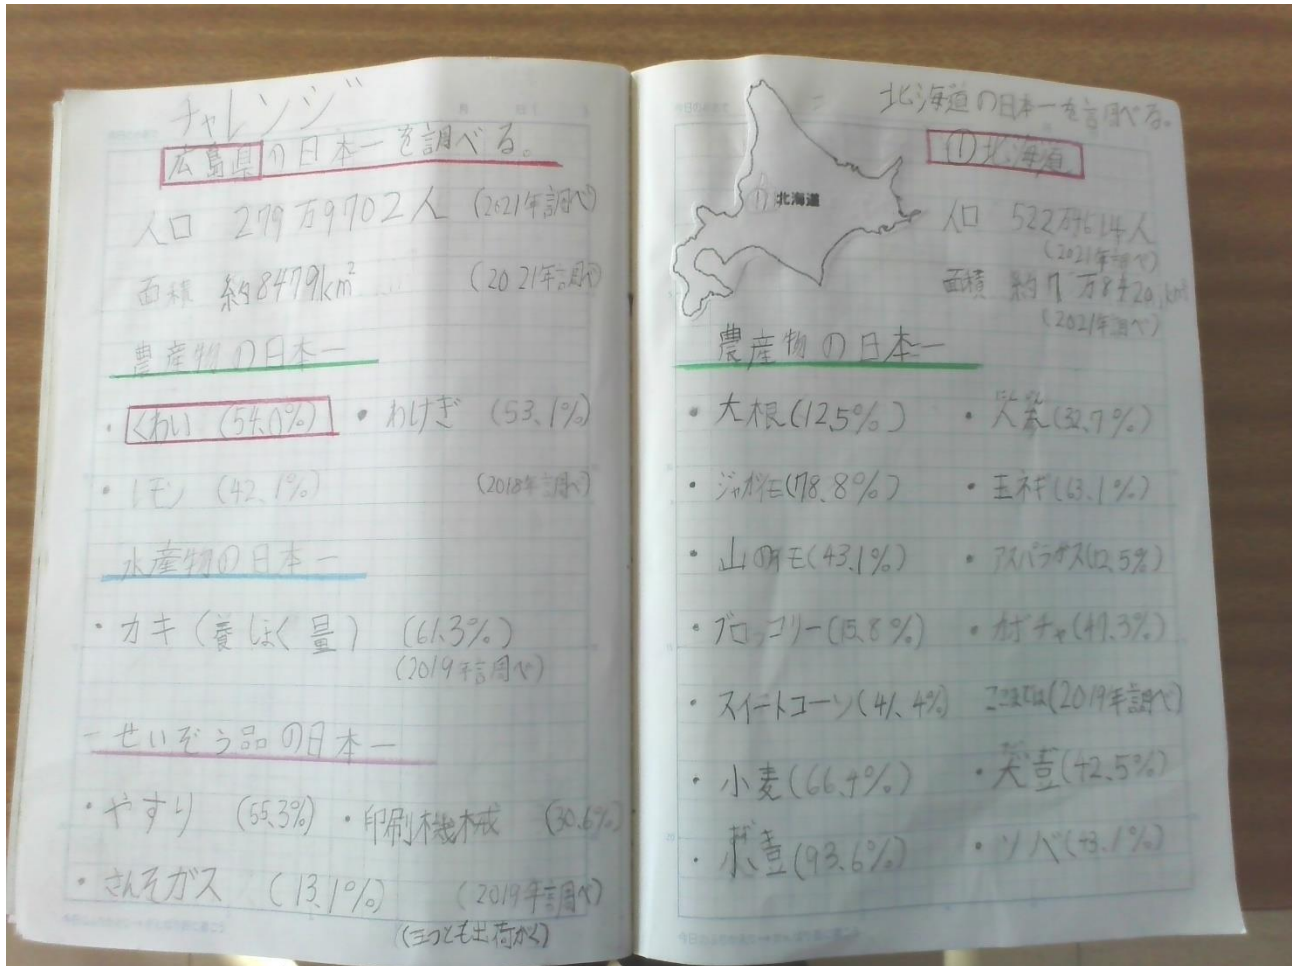 チャレンジ
広島県の日本一を調べる。
人口 279万9702人 (2021年調べ)
面積 約8479km² (2021年調べ)
農産物の日本一
・くわい (54.0%) ・わけぎ (53.1%)
・レモン (42.1%) (2018年調べ)
水産物の日本一
・カキ(養しょく量) (61.3%)
(2019年調べ)
せいぞう品の日本一
・やすり (55.3%) ・印刷機械 (30.6%)
・さんそガス (13.1%) (2019年調べ)
(三つとも出荷がく)
北海道の日本一を調べる。
①北海道
①北海道
人口 522万9614人
(2021年調べ)
面積 約7万8420km²
(2021年調べ)
農産物の日本一
・大根(12.5%) ・人参(32.7%)
・ジャガイモ(78.8%) ・玉ネギ(63.1%)
・山のイモ(43.1%) ・アスパラガス
・ブロッコリー(15.8%) ・カボチャ(47.3%)
・スイートコーン(41.4%) ここまでは(2019年調べ)
・小麦(66.4%) ・大豆(42.5%)
・小豆(93.6%) ・ソバ(43.1%)